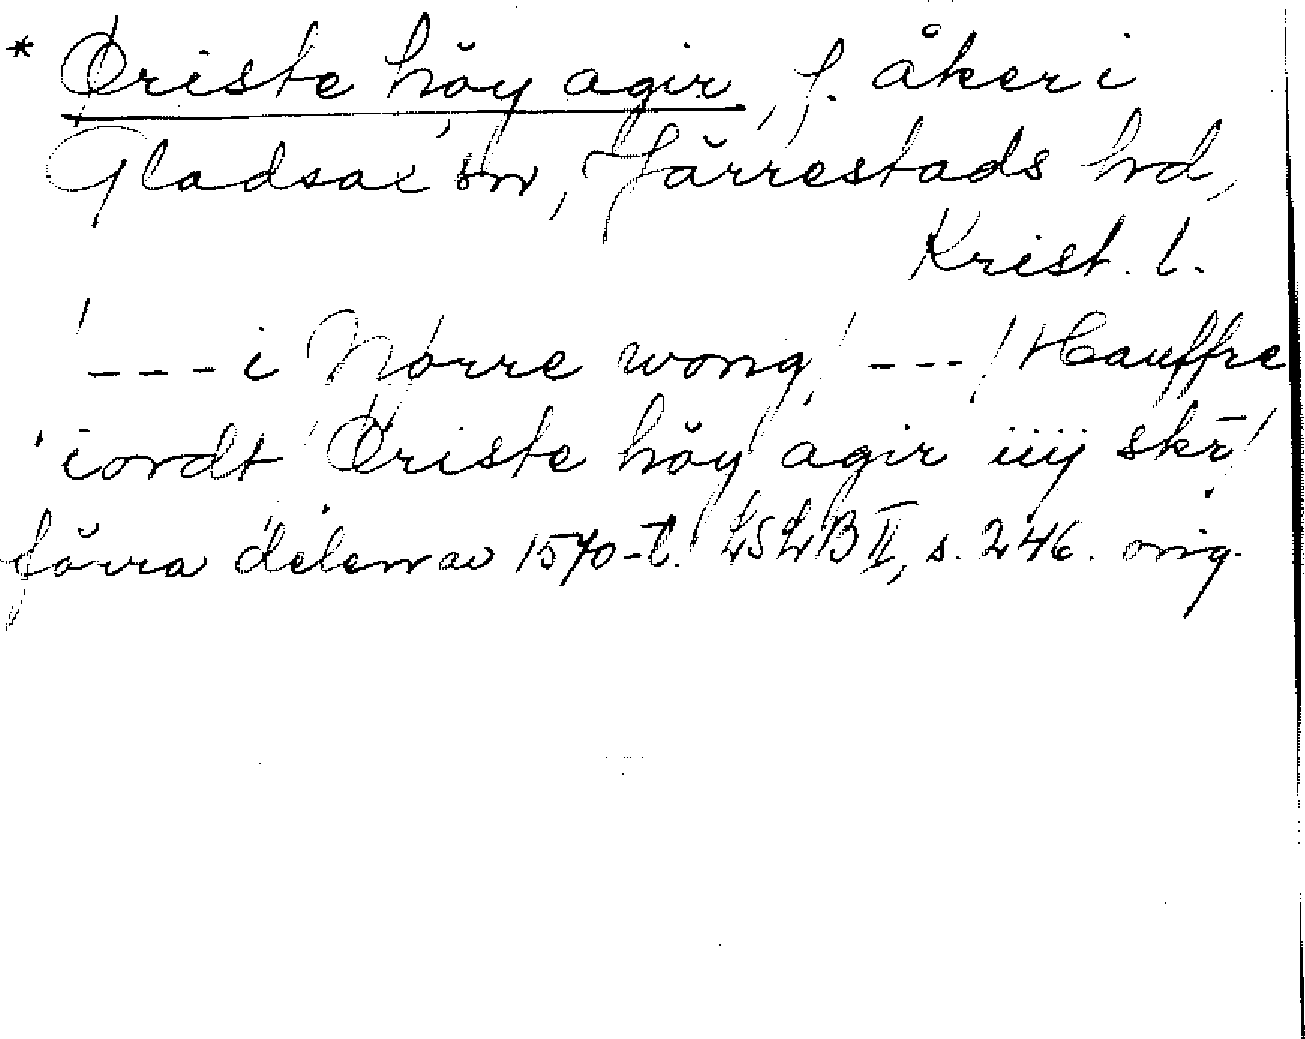 * Øriste höy agir, f. åker i
Gladsax sn, Järrestads hd,
Krist. l.
/ - - - i Nørre wong / - - - / Hauffre
iordt / Øriste höy agir iiij skr̄ /
förra delen av 1570-t. LSLB II, s. 246. orig.